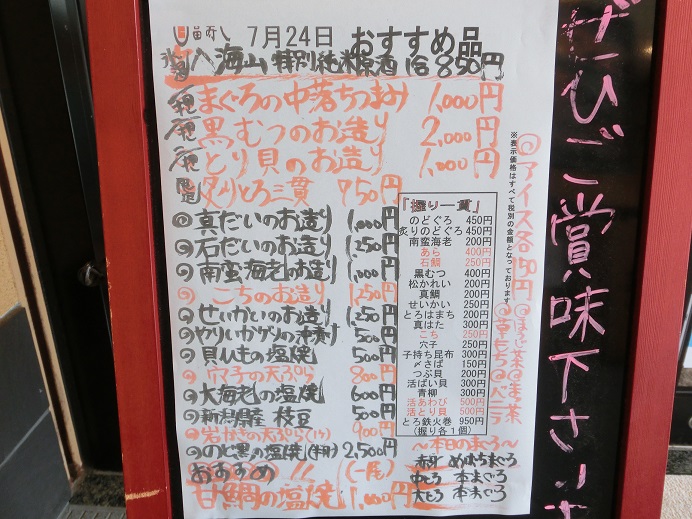 7月24日 おすすめ品
海山 特別純米原酒 1合 850円
まぐろの中落ちつまみ 1,000円
黒むつのお造り 2,000円
とり貝のお造り 1,000円
炙りとろ三貫 750円
◎真だいのお造り 1,000円
◎石だいのお造り 1,250円
◎南蛮海老のお造り 1,000円
◎こちのお造り 1,250円
◎せいかいのお造り 1,250円
◎やりいかゲソの沖漬け 500円
◎貝ひもの塩焼 500円
◎穴子の天ぷら 800円
◎大海老の塩焼 600円
◎新潟県産 枝豆 500円
◎岩がきの天ぷら(1ヶ) 900円
◎のど黒の塩焼(半身) 2,500円
おすすめ!! (一尾)
甘鯛の塩焼 1,000円
「握り一貫」
のどぐろ 450円
炙りのどぐろ 450円
南蛮海老 200円
あら 400円
石鯛 250円
黒むつ 400円
松かれい 200円
真鯛 200円
せいかい 250円
とろはまち 200円
真はた 300円
こち 250円
穴子 250円
子持ち昆布 300円
〆さば 150円
つぶ貝 200円
活ばい貝 300円
青柳 300円
活あわび 500円
活とり貝 500円
とろ鉄火巻 950円
(握り各1個)
～本日のまぐろ～
赤身 めばちまぐろ
中とろ 本まぐろ
大とろ 本まぐろ
※表示価格はすべて税別の金額となっております
◎アイス各150円
◎ほうじ茶◎まっ茶
◎草もち◎バニラ
ぜひご賞味下さい